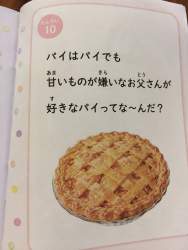 もんだい
10
パイはパイでも
甘いものが嫌いなお父さんが
好きなパイってな〜んだ？